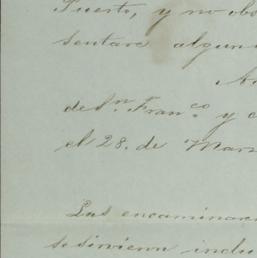 Puerto, y no obs
sentare algun
de Sn. Franco. y c
el 28. de Marz
Las encaminare
se sirvieran inclu